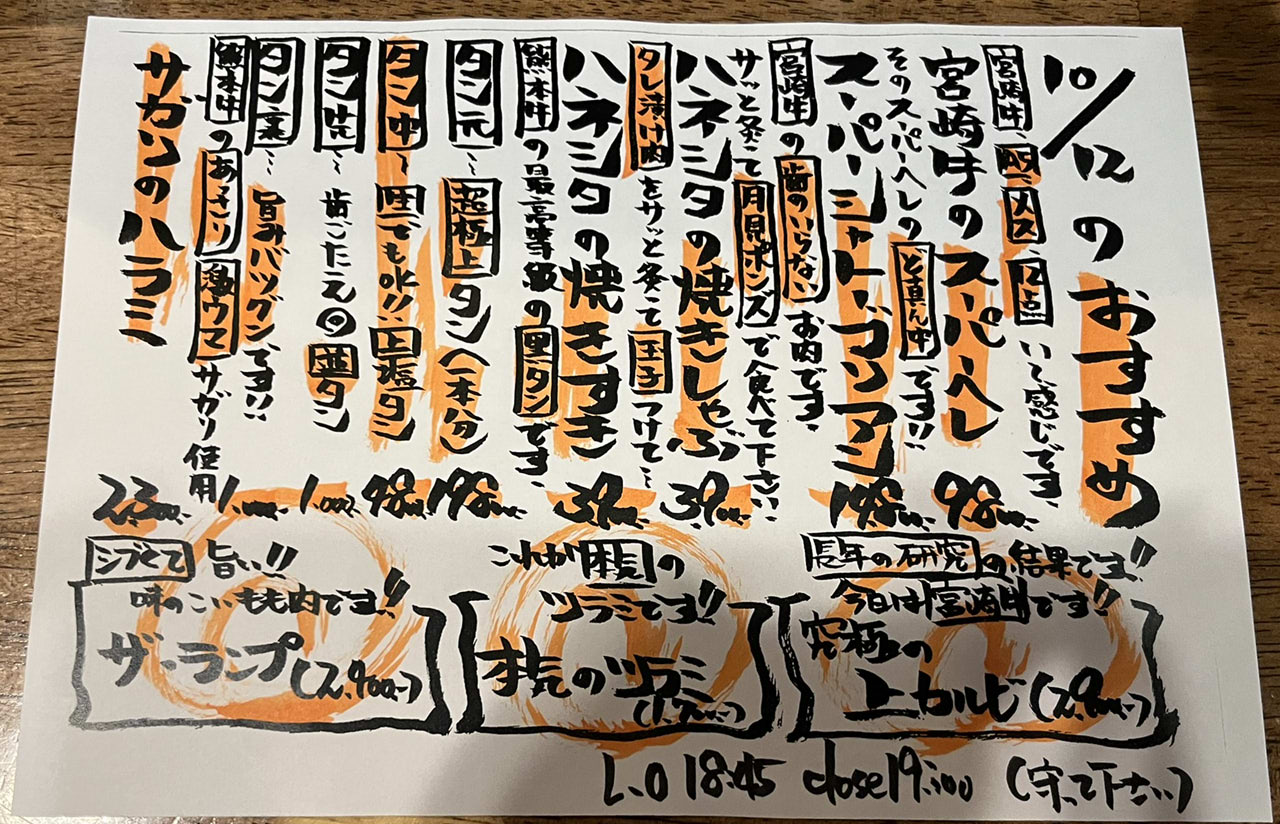 10/12のおすすめ
宮崎牛、メス12点いて感じです
宮崎牛のスーパーヘレ 98
そのスーパーヘレのど真ん中です!!
スーパーシャトーブリアン 198
宮崎牛の歯のいらないお肉です。
サッと炙って月見ポンズで食べて下さい、
ハネシタの焼きしゃぶ 39
タレ漬け肉をサッと炙って玉子つけて〜
ハネシタの焼きすき 39
熊本牛の最高等級の黒タンです、
タン元〜超極上タン(一本分) 198
タン中〜生でもOK!!上塩タン 98
タン先〜歯ごたえ◎並タン 1.000.
タン裏〜旨みバツグンです!! 1.000.
熊本牛のあっさり激ウマサガリ使用
サガリのハラミ 23
長年の研究の結果です!!
今日は宮崎牛です!!
究極の
上カルビ(2.900.-)
これが本気の
ツラミです!!
本気のツラミ
シブくて旨い!!
味のこいもも肉です!!
ザ・ランプ(2.900.-)
L.O 18:45 close 19:00 (守って下さい)